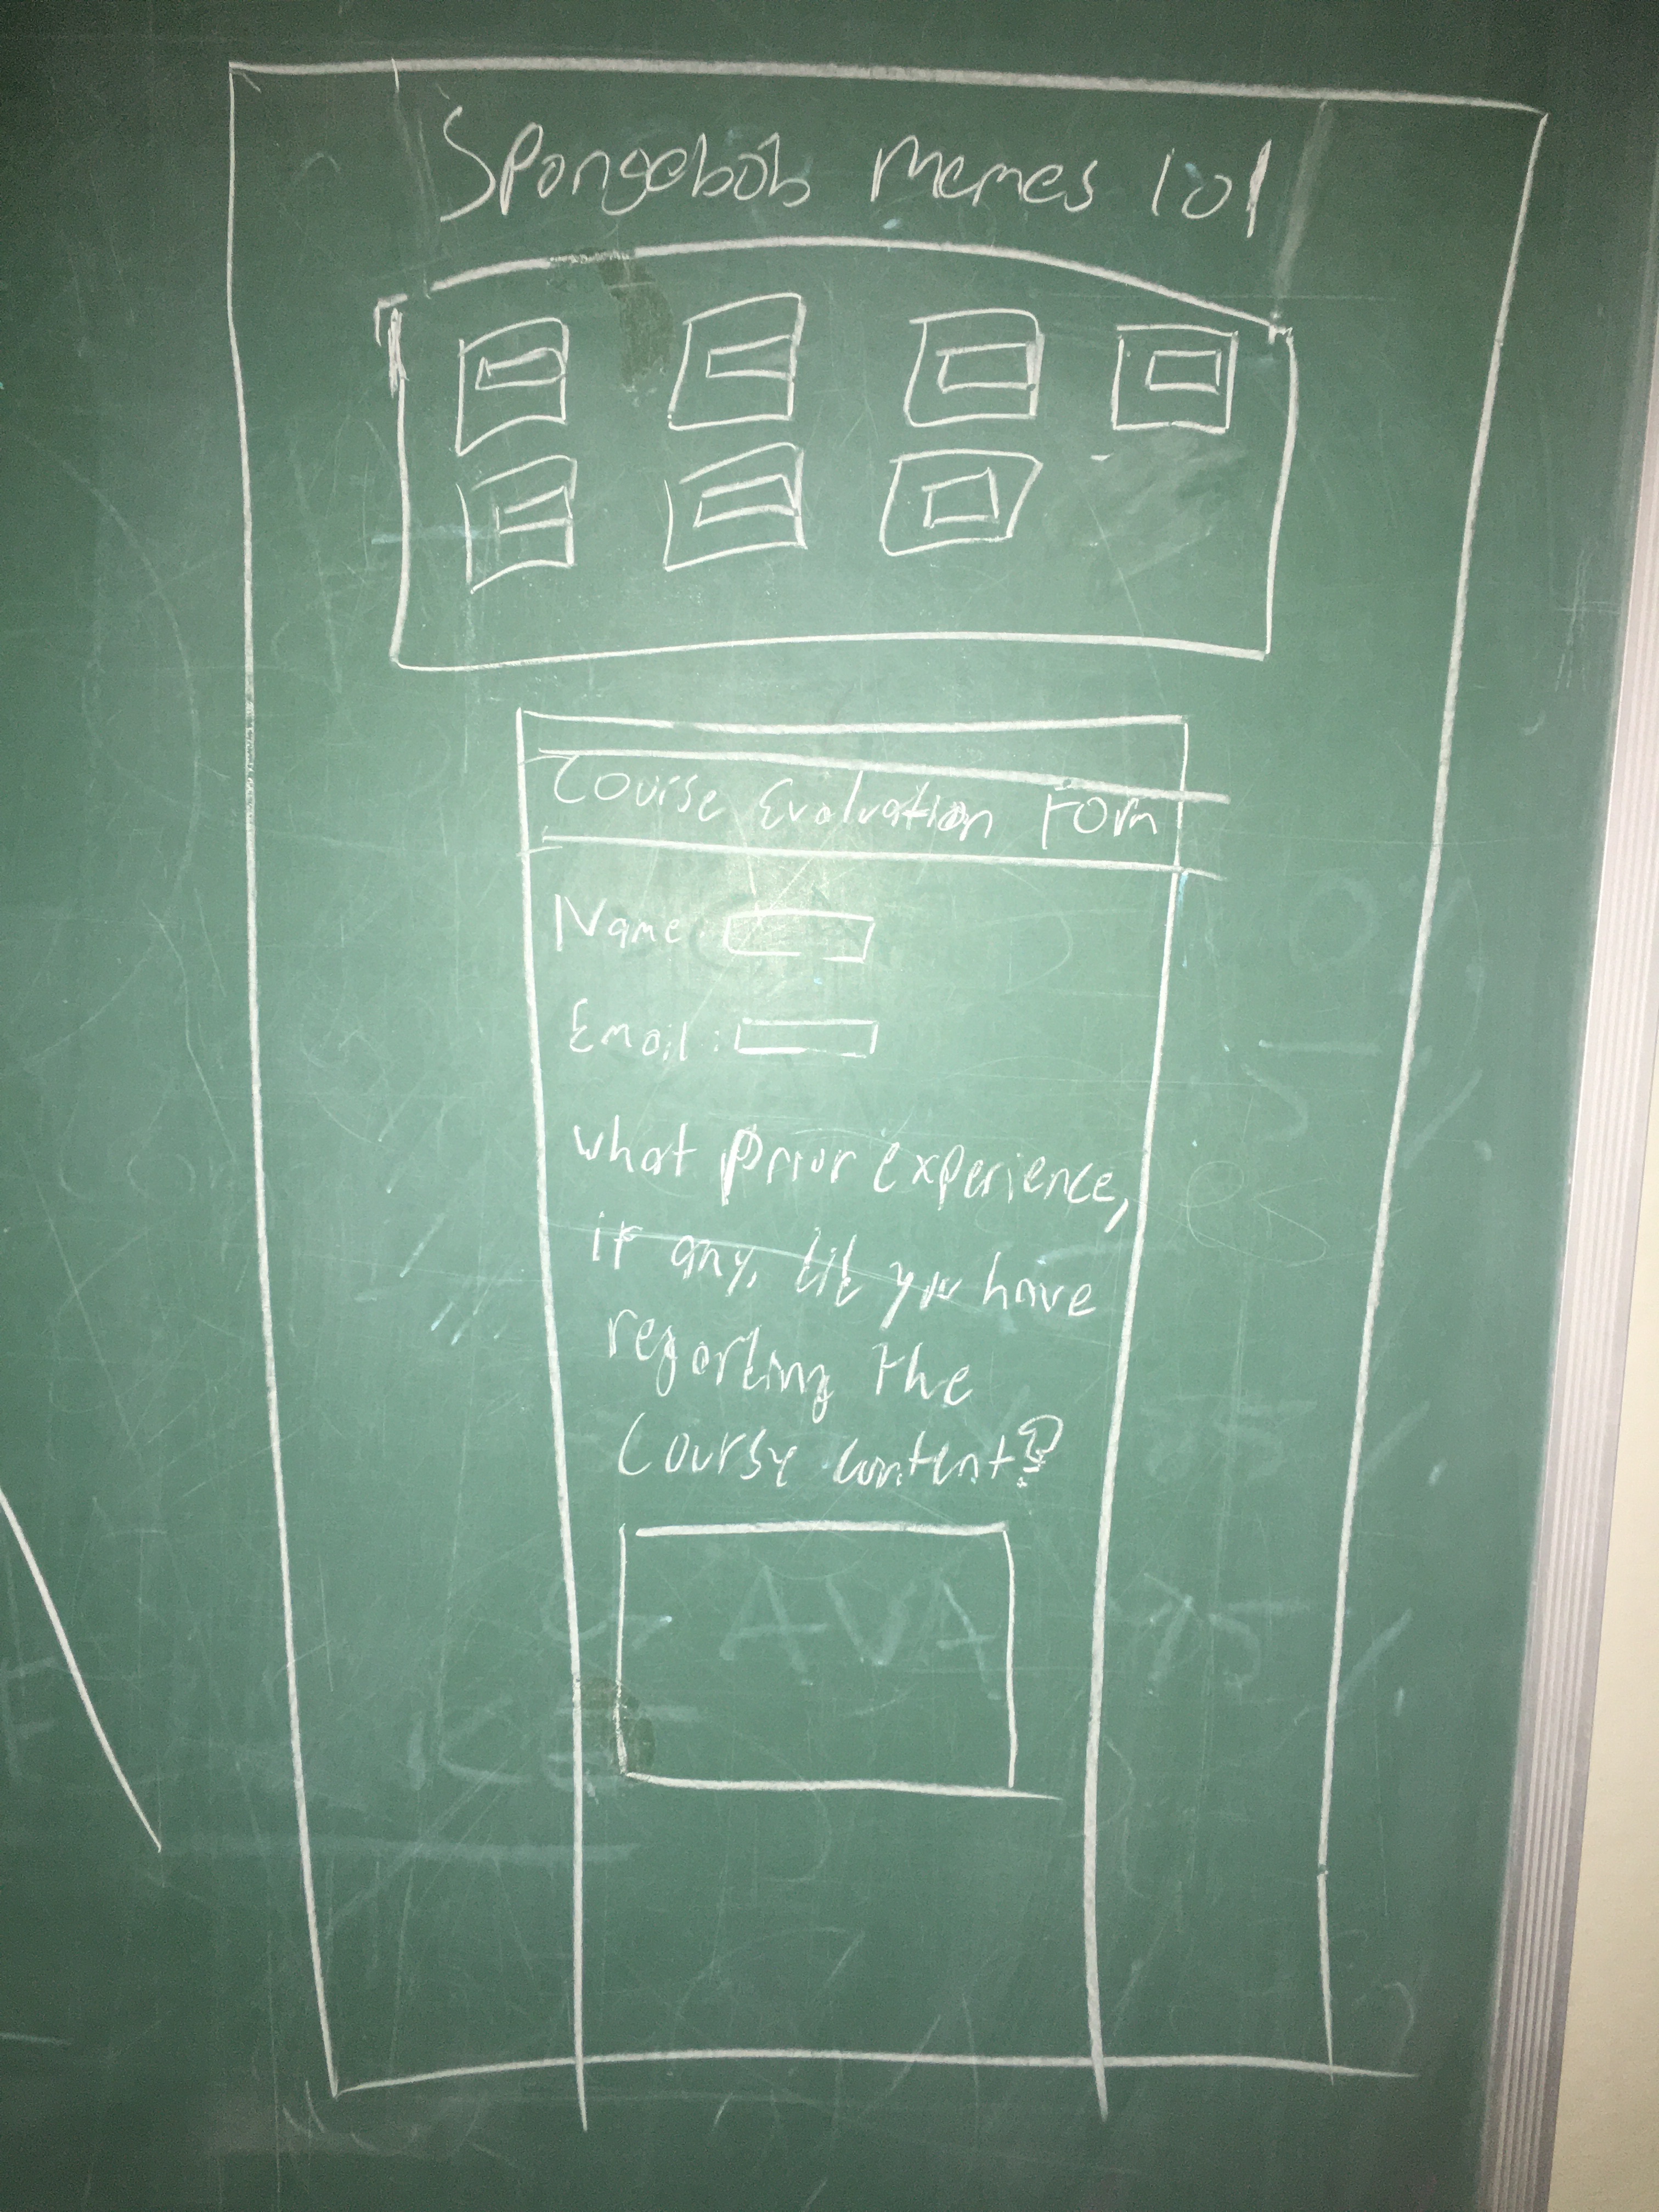 Spongebob Memes lol
Course Evaluation Form
Name:
Email:
what prior experience,
if any, did you have
regarding the
Course content?